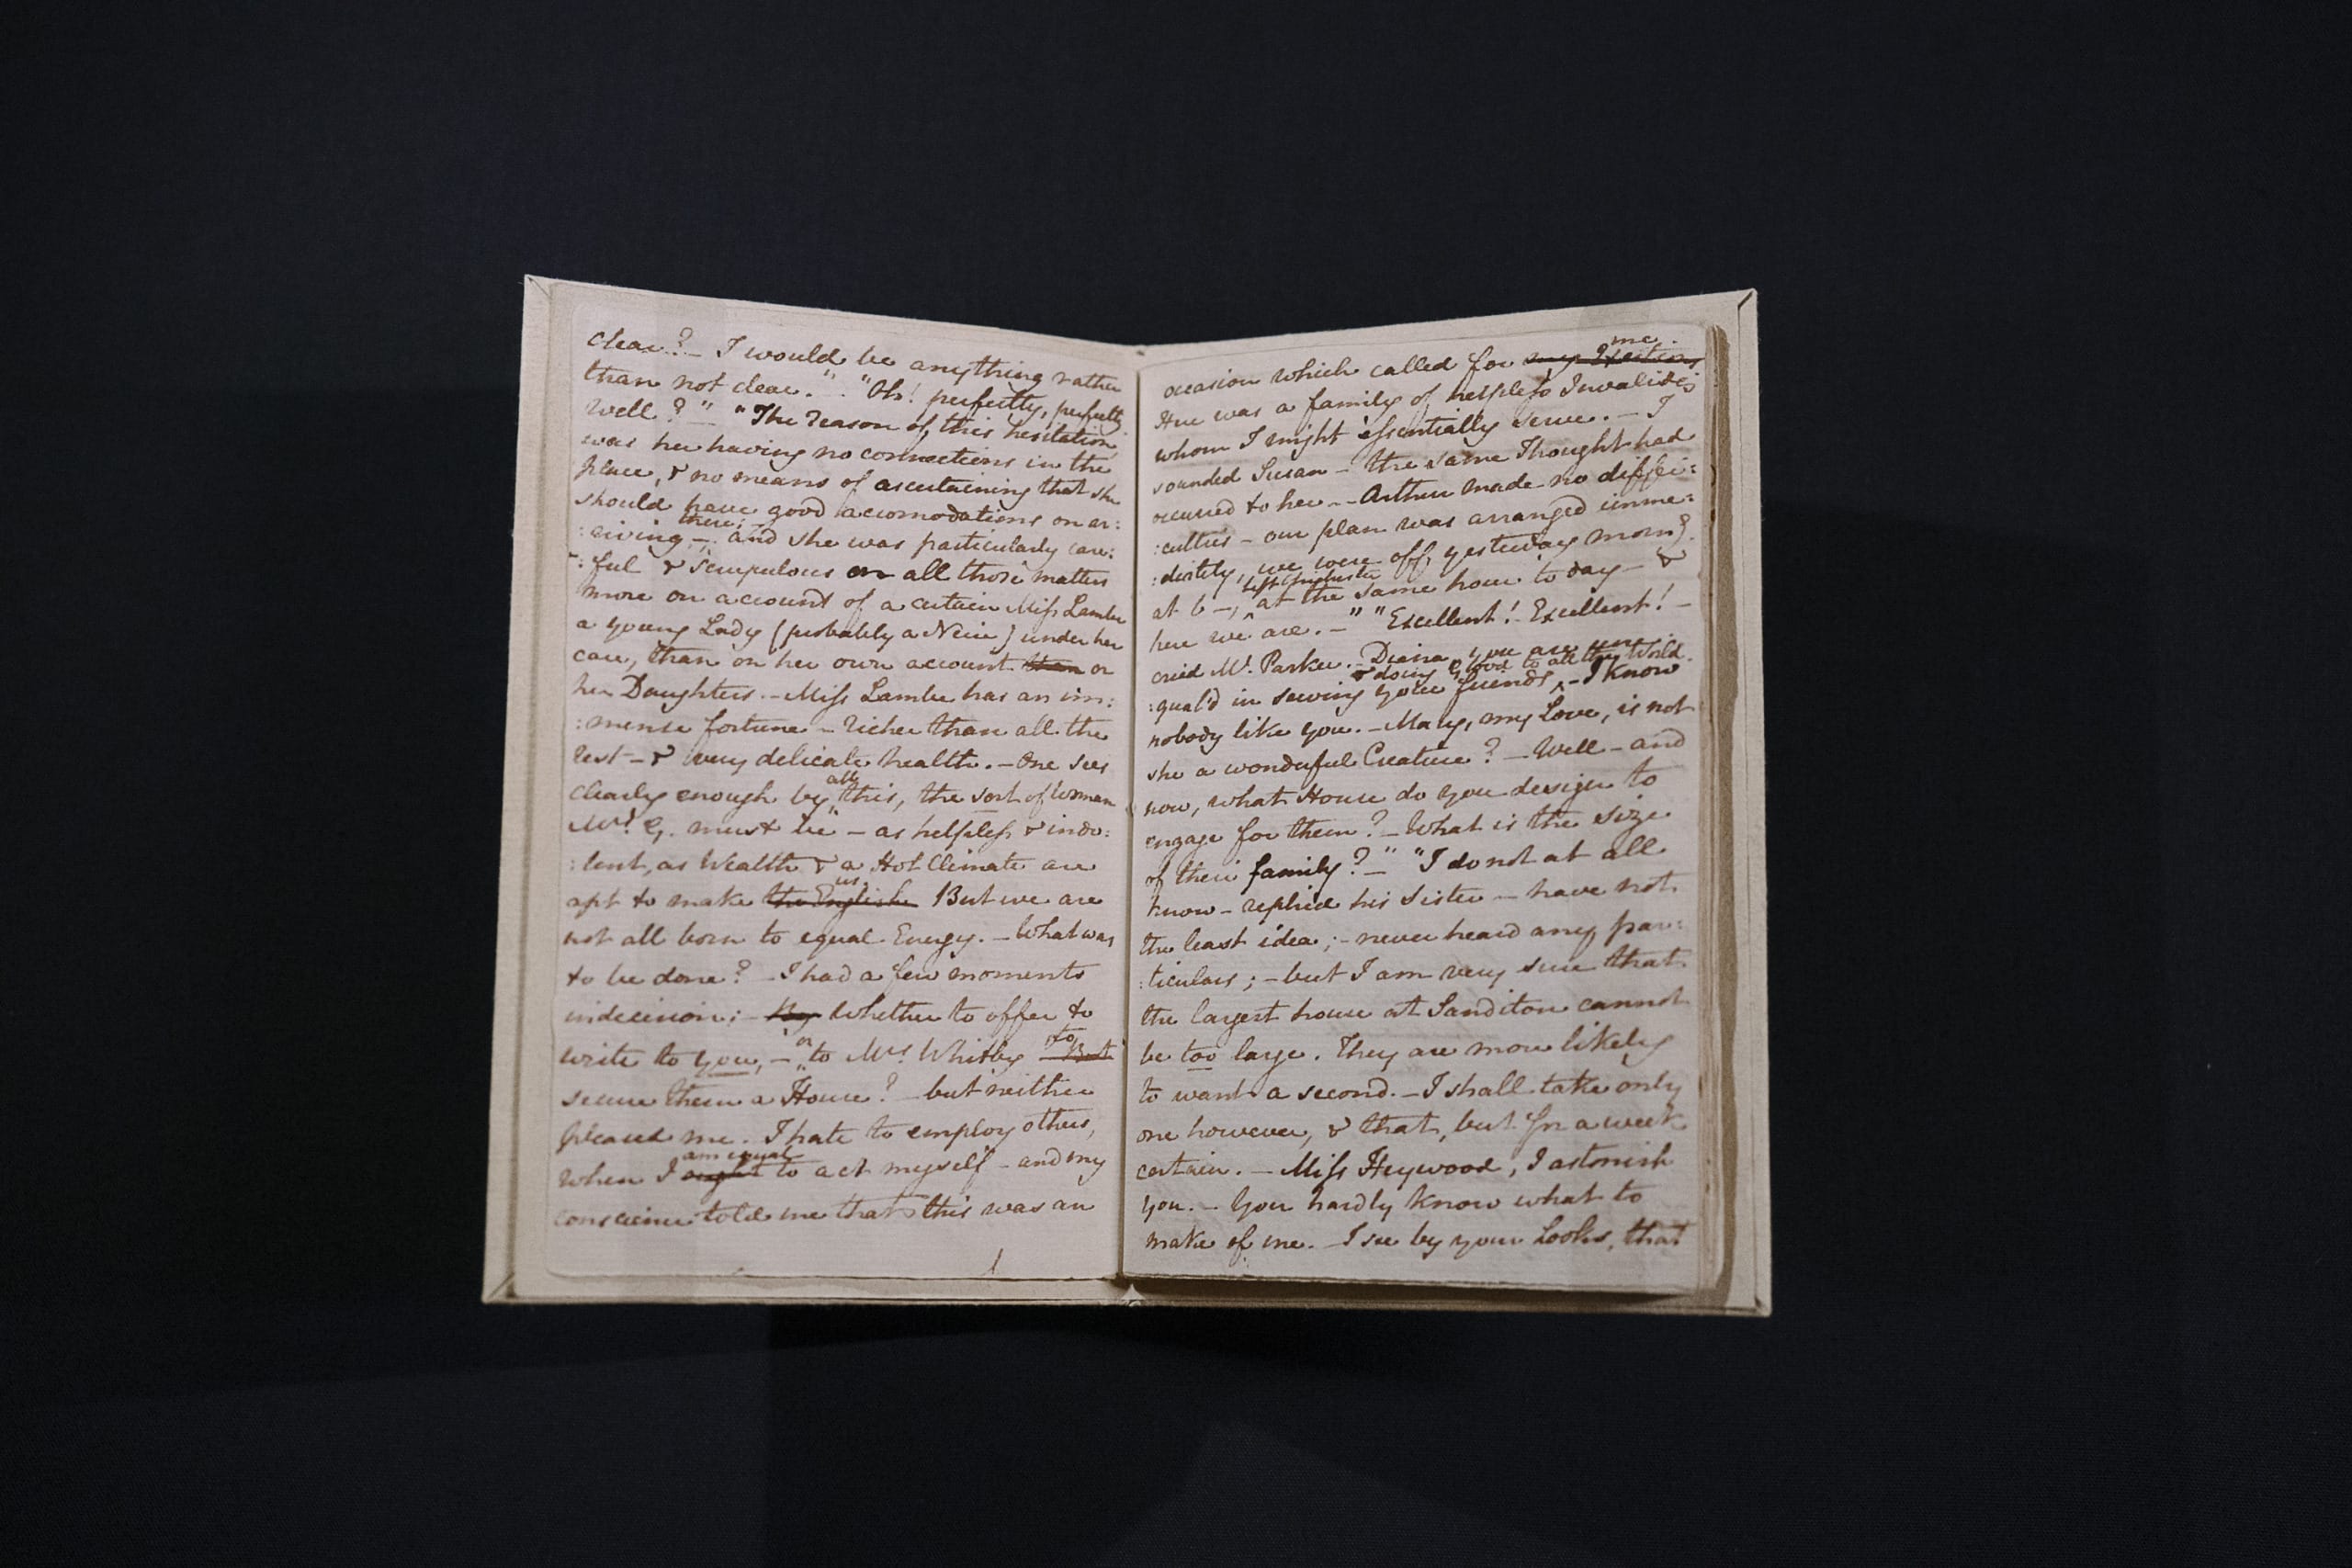 clear? – I would be anything rather
than not clear." – "Oh! perfectly, perfectly
well?" – "The reason of this hesitation
was her having no connections in the
place, & no means of ascertaining that she
should have good accomodations on ar:
there;
:riving – and she was particularly care:
:ful & scrupulous on all those matters
more on account of a certain Miss Lambe
a young Lady (probably a Neice) under her
care, than on her own account than or
her Daughters. – Miss Lambe has an im:
:mense fortune – richer than all the
rest – & very delicate health. – One sees
all
clearly enough by this, the sort of Woman
Mrs. G. must be – as helpless & indo:
:lent, as Wealth & a Hot Climate are
us.
apt to make the English But we are
not all born to equal Energy. – What was
to be done? – I had a few moments
indecision; – By Whether to offer to
or to
write to you, – to Mrs. Whitby But
secure them a House? – but neither
pleased me. – I hate to employ others,
am equal
when I ought to act myself – and my
conscience told me that this was an
me.
occasion which called for my Exertions
Here was a family of helpless Invalides
whom I might essentially serve. – I
sounded Susan – the same Thought had
occurred to her. – Arthur made no diffi:
:culties – our plan was arranged imme:
:diately, we were off yesterday morng.
left Chichester
at 6 –, at the same hour today – &
here we are. –" "Excellent! – Excellent! –
cried Mr. Parker. – Diana, you are une:
& doing Good to all the World.
:qual'd in serving your friends – I know
nobody like you. – Mary, my Love, is not
she a wonderful Creature? – Well – and
now, what House do you design to
engage for them? – What is the size
of their family? –" "I do not at all
know – replied his Sister – have not
the least idea; – never heard any par:
:ticulars; – but I am very sure that
the largest house at Sanditon cannot
be too large. They are more likely
to want a second. – I shall take only
one however, & that, but for a week
certain. – Miss Heywood, I astonish
you. – You hardly know what to
make of me. – I see by your Looks, that